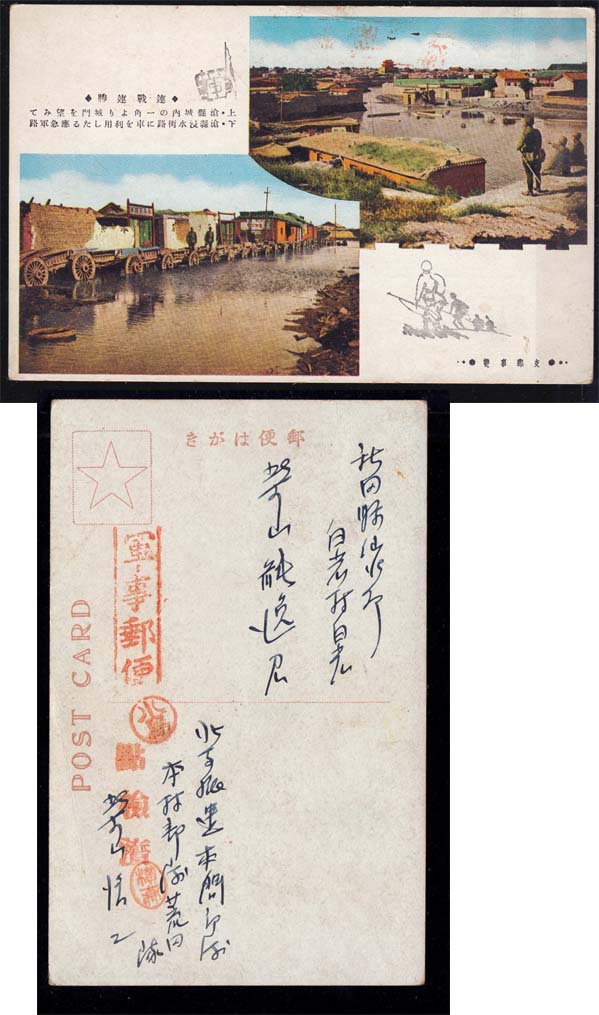 ◆連戰連勝◆
上・滄縣城内の一角より城門を望みて
下・滄縣浸水街路に車を利用したる應急軍路
・●支那事變●・
郵便はがき
秋田縣仙北郡
白岩村白岩
軍事郵便
POST CARD
點檢濟
北支派遣本間部隊
本村部隊荒田隊